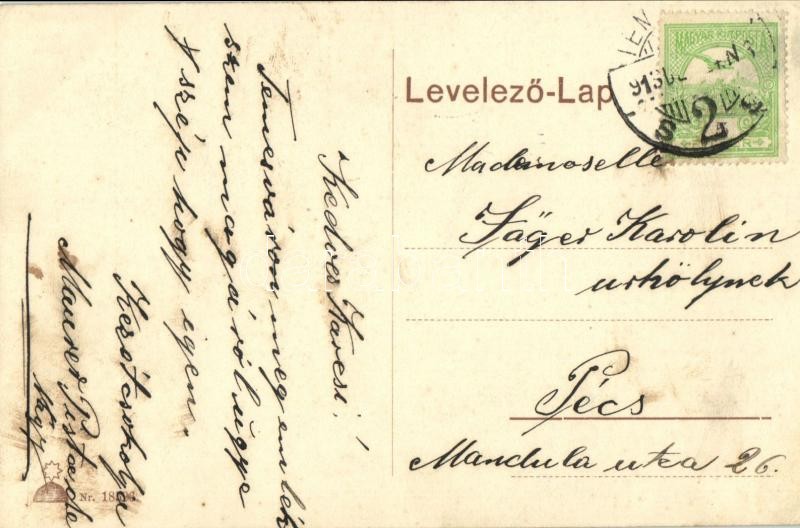 Levelező-Lap
MAGYAR KIR. POSTA
913
2
Madamoselle
Jäger Karolin
urhölynek
Pécs
Mandula utca 26.
Kedves Karcsi!
Temesváron megemlék
szem magáról ugye
szép hogy igen.
Kezét csókolja
Maurer Pista
Nr. 18